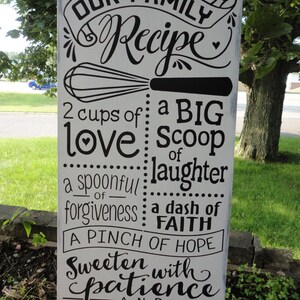 OUR FAMILY
Recipe
2 cups of
love
a BIG
Scoop
of
laughter
a spoonful
of
forgiveness
a dash of
FAITH
A PINCH OF HOPE
Sweeten with
patience
AND